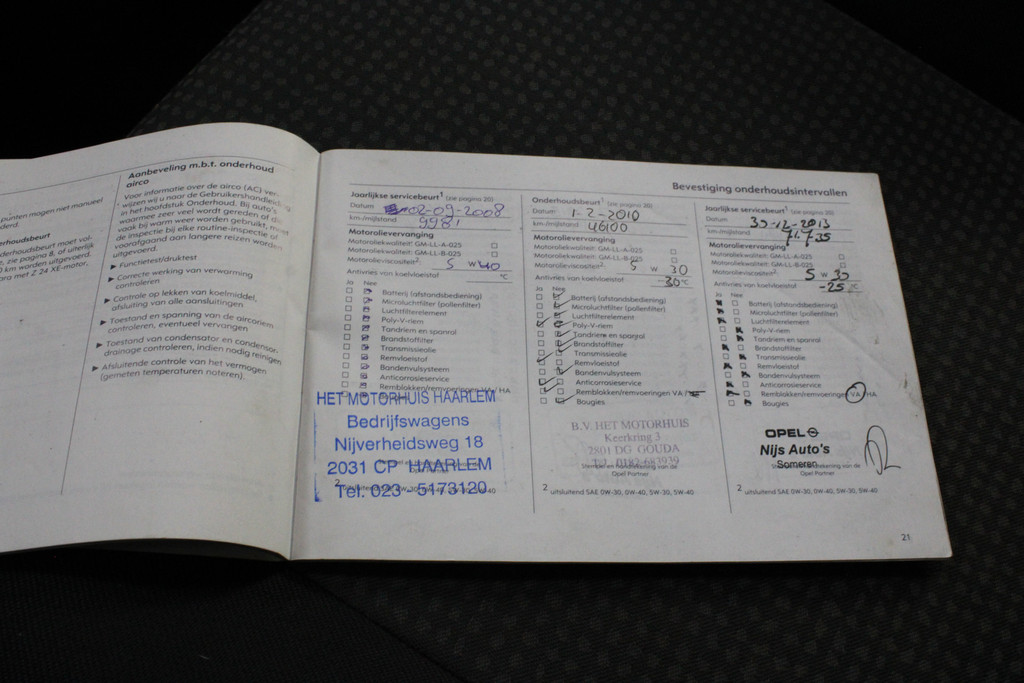 punten mogen niet manueel
derd.
erhoudsbeurt
dsbeurt moet vol-
zie pagina 8, of uiterlijk
km worden uitgevoerd.
met Z 24 XE-motor.
Aanbeveling m.b.t. onderhoud
airco
Voor informatie over de airco (AC) ver-
wijzen wij u naar de Gebruikershandleiding
in het hoofdstuk Onderhoud. Bij auto's
waarmee zeer veel wordt gereden of die
vaak bij warm weer worden gebruikt, moet
de inspectie bij elke routine-inspectie of
voorafgaand aan langere reizen worden
uitgevoerd.
► Functietest/druktest
► Correcte werking van verwarming
controleren
► Controle op lekken van koelmiddel,
afsluiting van alle aansluitingen
► Toestand en spanning van de aircoriem
controleren, eventueel vervangen
► Toestand van condensator en condensor-
drainage controleren, indien nodig reinigen
► Afsluitende controle van het vermogen
(gemeten temperaturen noteren).
Bevestiging onderhoudsintervallen
Jaarlijkse servicebeurt¹ (zie pagina 20)
Datum 02-09-2008
km-/mijlstand 9981
Motorolieverversing
Motoroliekwaliteit: GM-LL-A-025
GM-LL-B-025
Motorolieviscositeit²: 5 W 40
Antivries van koelvloeistof °C
Ja Nee
Batterij (afstandsbediening)
Microluchtfilter (pollenfilter)
Luchtfilterelement
Poly-V-riem
Tandriem en spanrol
Brandstoffilter
Transmissieolie
Remvloeistof
Bandenvulsysteem
Anticorrosieservice
Remblokken/remvoeringen VA / HA
HET MOTORHUIS HAARLEM
Bedrijfswagens
Nijverheidsweg 18
2031 CP HAARLEM
Tel. 023 - 5173120
² uitsluitend SAE 0W-30, 0W-40, 5W-30, 5W-40
Onderhoudsbeurt¹ (zie pagina 20)
Datum 1-2-2010
km-/mijlstand 46100
Motorolieverversing
Motoroliekwaliteit: GM-LL-A-025
GM-LL-B-025
Motorolieviscositeit²: 5 W 30
Antivries van koelvloeistof -30 °C
Ja Nee
Batterij (afstandsbediening)
Microluchtfilter (pollenfilter)
Luchtfilterelement
Poly-V-riem
Tandriem en spanrol
Brandstoffilter
Transmissieolie
Remvloeistof
Bandenvulsysteem
Anticorrosieservice
Remblokken/remvoeringen VA /
Bougies
B.V. HET MOTORHUIS
Keerkring 3
2801 DG GOUDA
Tel. 0182-683939
Stempel en handtekening van de
Opel Partner
² uitsluitend SAE 0W-30, 0W-40, 5W-30, 5W-40
Jaarlijkse servicebeurt¹ (zie pagina 20)
Datum
km-/mijlstand
Motorolieverversing
Motoroliekwaliteit: GM-LL-A-025
GM-LL-B-025
Motorolieviscositeit²: 5 W 30
Antivries van koelvloeistof -25 °C
Ja Nee
Batterij (afstandsbediening)
Microluchtfilter (pollenfilter)
Luchtfilterelement
Poly-V-riem
Tandriem en spanrol
Brandstoffilter
Transmissieolie
Remvloeistof
Bandenvulsysteem
Anticorrosieservice
Remblokken/remvoeringen VA / HA
Bougies
OPEL
Nijs Auto's
Someren
Opel Partner
² uitsluitend SAE 0W-30, 0W-40, 5W-30, 5W-40
21